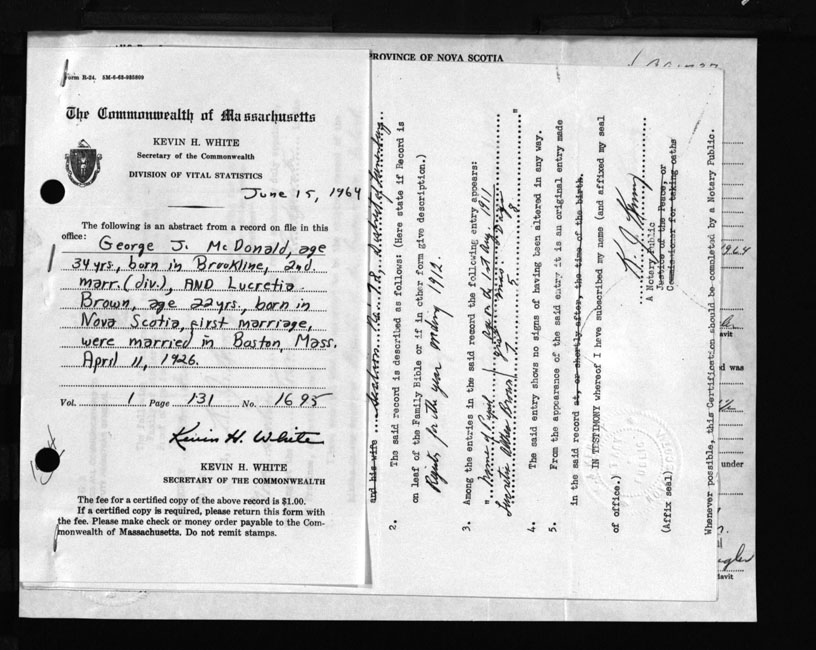 PROVINCE OF NOVA SCOTIA
Form R-24. 5M-6-62-935809
The Commonwealth of Massachusetts
KEVIN H. WHITE
Secretary of the Commonwealth
DIVISION OF VITAL STATISTICS
June 15, 1964
The following is an abstract from a record on file in this
office:
George J. McDonald, age
34 yrs., born in Brookline, 2nd.
marr. (div.), AND Lucretia
Brown, age 22 yrs., born in
Nova Scotia, first marriage,
were married in Boston, Mass.
April 11, 1926.
Vol. 1 Page 131 No. 1695
Kevin H. White
KEVIN H. WHITE
SECRETARY OF THE COMMONWEALTH
The fee for a certified copy of the above record is $1.00.
If a certified copy is required, please return this form with
the fee. Please make check or money order payable to the Com-
monwealth of Massachusetts. Do not remit stamps.
and his wife
2. The said record is described as follows: (Here state if Record is
on leaf of the Family Bible or if in other form give description.)
Register for the year ending 1912.
3. Among the entries in the said record the following entry appears:
" Name of Pupil Age on the 1st Aug. 1911
Brown 7 5 8 "
4. The said entry shows no signs of having been altered in any way.
5. From the appearance of the said entry it is an original entry made
in the said record at, or shortly after, the time of the birth.
IN TESTIMONY whereof I have subscribed my name (and affixed my seal
of office.)
A Notary Public
Justice of the Peace, or
Commissioner for taking oaths
(Affix seal)
Whenever possible, this Certification should be completed by a Notary Public.
1964
avit
d was
under
davit